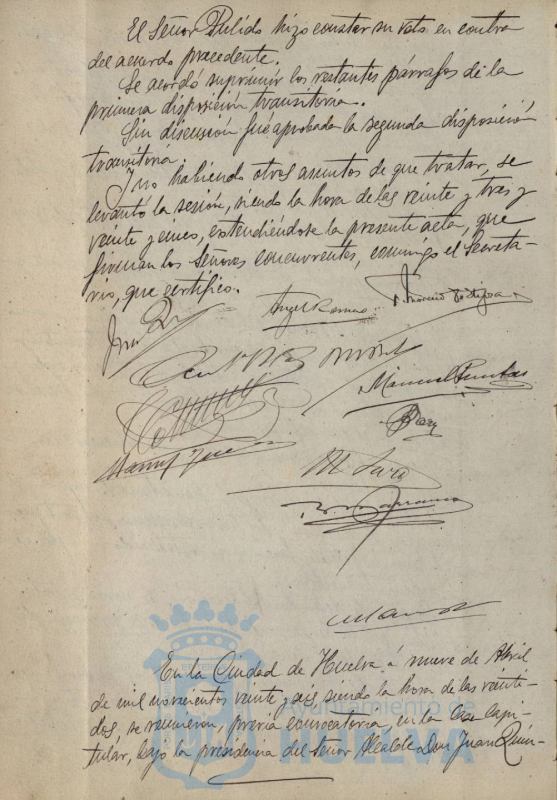 El Señor Pulido hizo constar su voto en contra
del acuerdo precedente.
Se acordó suprimir los restantes párrafos de la
primera disposición transitoria.
Sin discusión fué aprobada la segunda disposición
transitoria.
Y no habiendo otros asuntos de que tratar, se
levantó la sesión, siendo la hora de las veinte y tres y
veinte y cinco, extendiéndose la presente acta, que
firman los Señores concurrentes, conmigo el Secreta-
rio, que certifico.
Manuel
M.
En la Ciudad de Huelva á nueve de Abril
de mil novecientos veinte y seis siendo la hora de las veinti-
dos, se reunieron, previa convocatoria, en la Casa Capi-
tular, bajo la presidencia del Señor Alcalde Don Juan Quin-
Ayuntamiento de
HUELVA